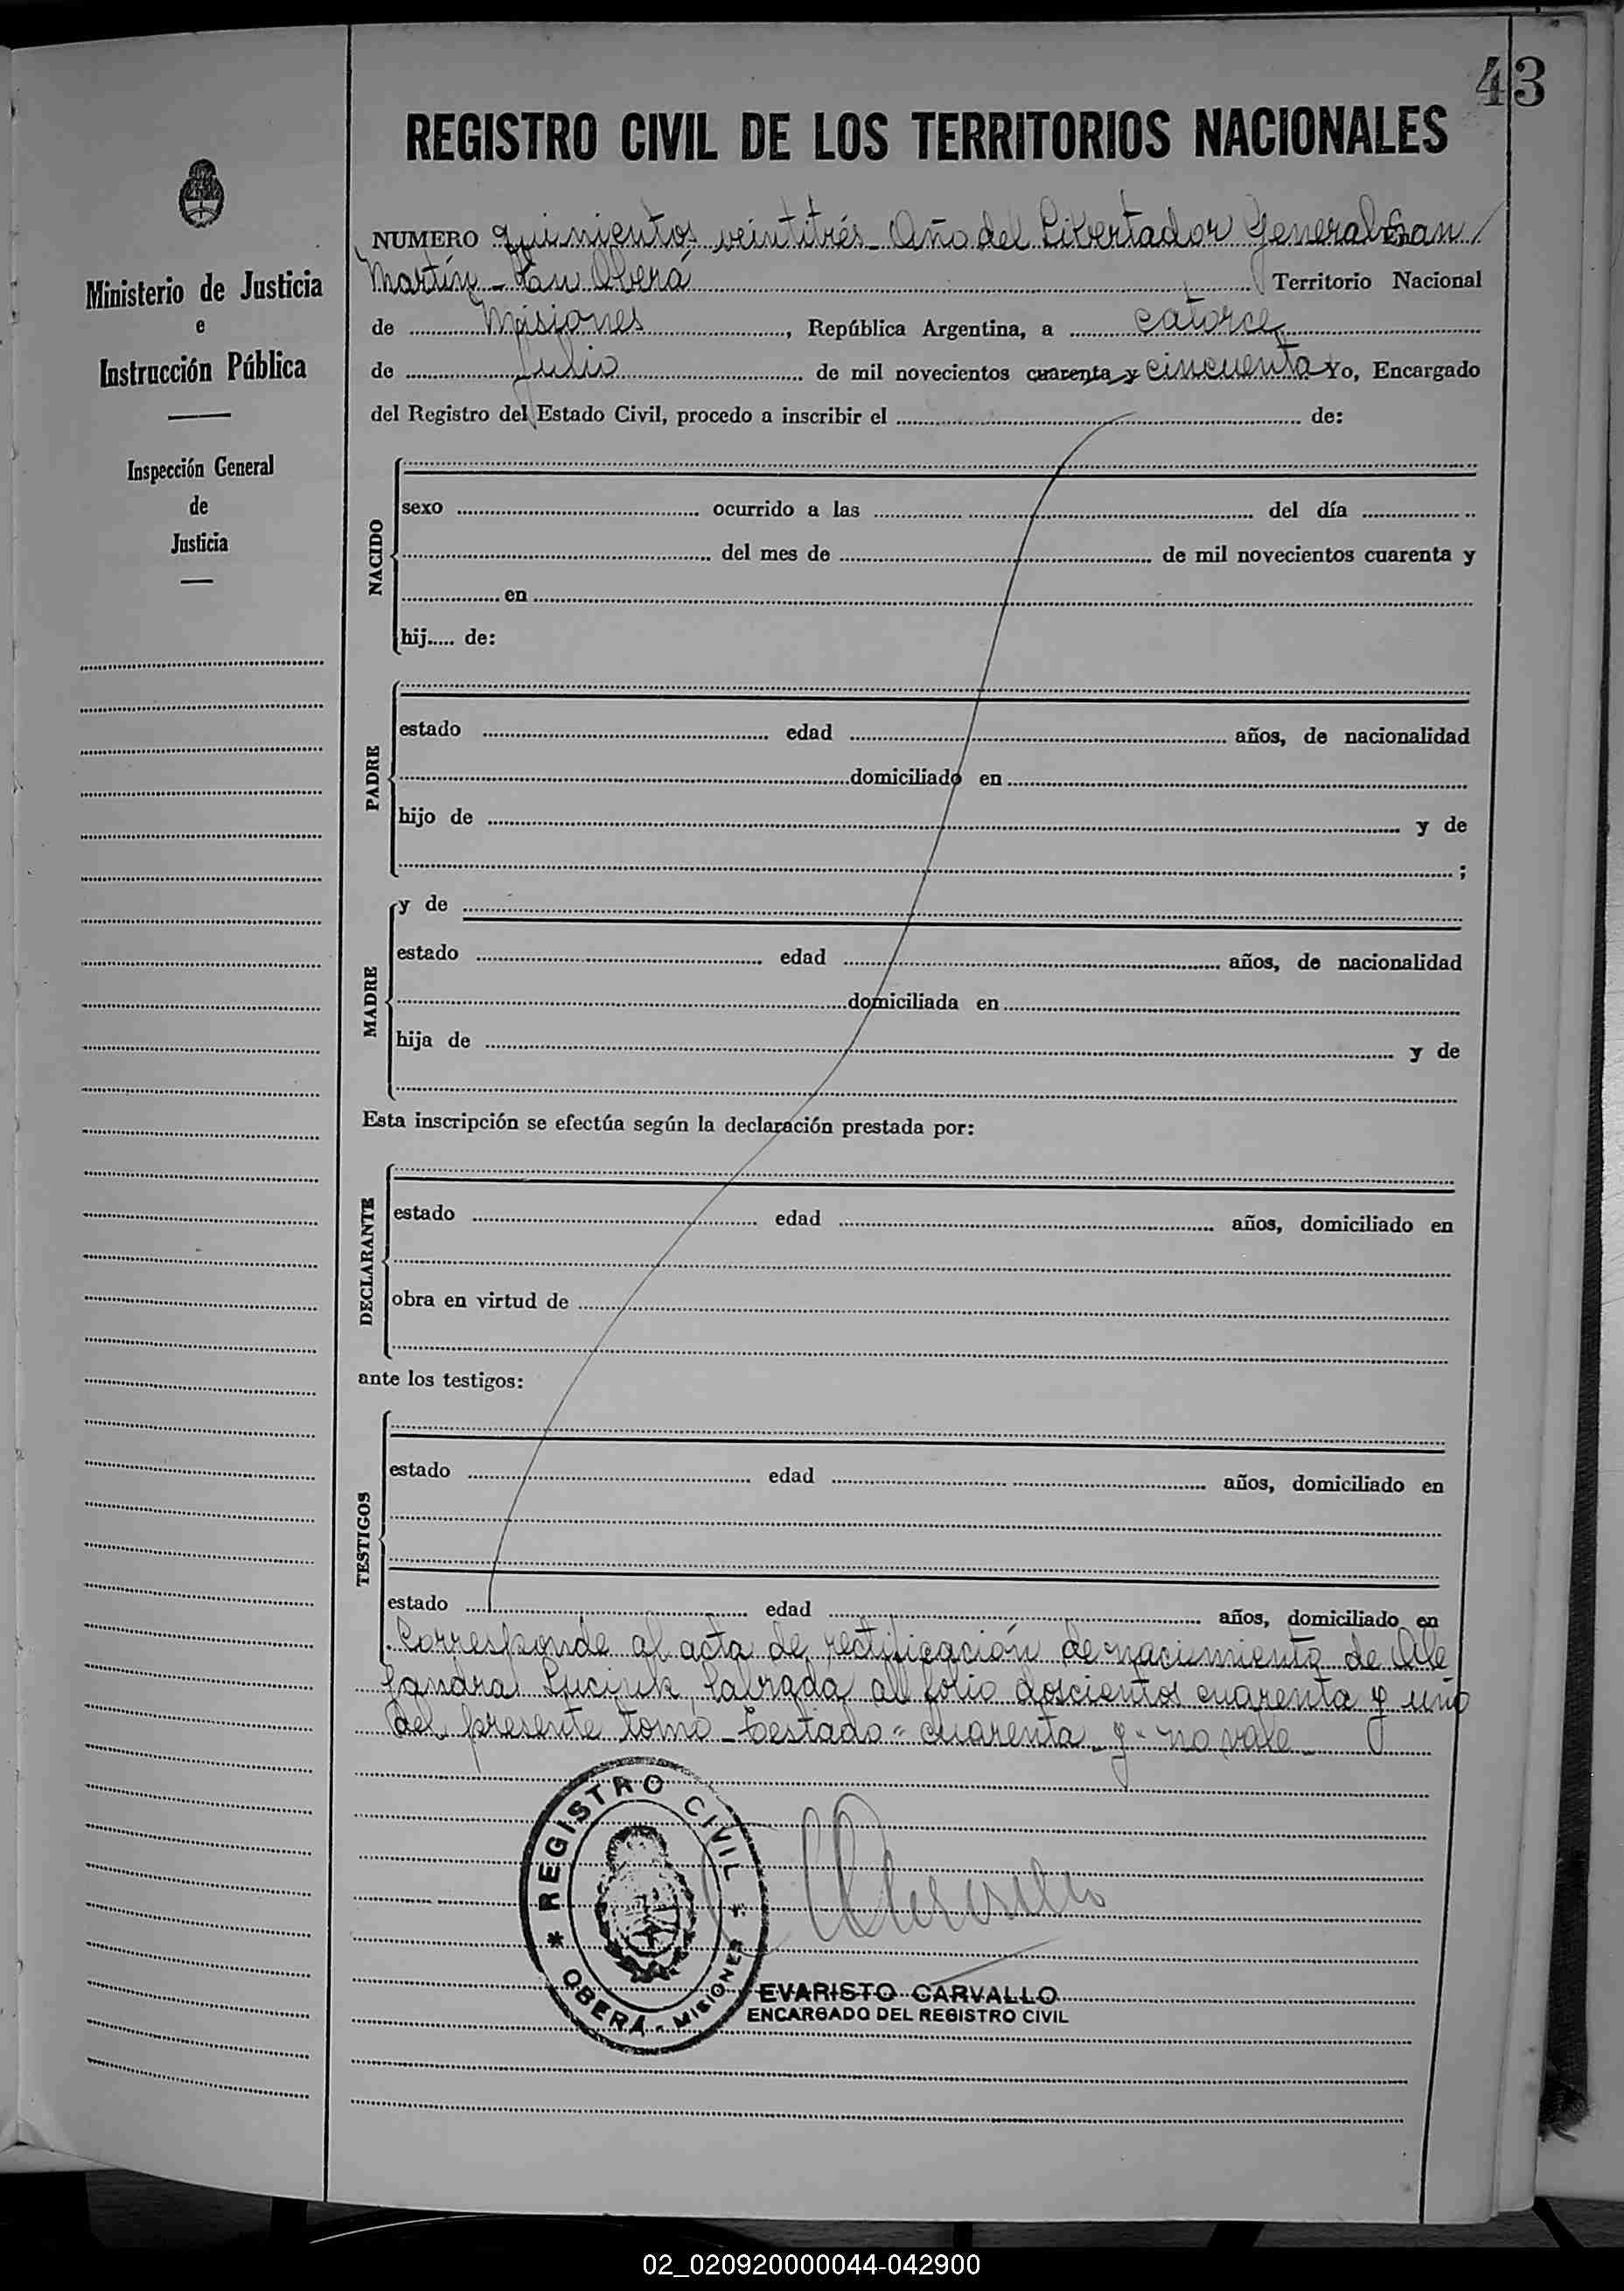 43
REGISTRO CIVIL DE LOS TERRITORIOS NACIONALES
Ministerio de Justicia
e
Instrucción Pública
Inspección General
de
Justicia
NUMERO quinientos veintitrés - Año del Libertador General San
Martín - En Oberá Territorio Nacional
de Misiones, República Argentina, a catorce
de Julio de mil novecientos cuarenta y cincuenta Yo, Encargado
del Registro del Estado Civil, procedo a inscribir el de:
NACIDO
sexo ocurrido a las del día
del mes de de mil novecientos cuarenta y
en
hij..... de:
PADRE
estado edad años, de nacionalidad
domiciliado en
hijo de y de
;
MADRE
y de
estado edad años, de nacionalidad
domiciliada en
hija de y de
Esta inscripción se efectúa según la declaración prestada por:
DECLARANTE
estado edad años, domiciliado en
obra en virtud de
ante los testigos:
TESTIGOS
estado edad años, domiciliado en
estado edad años, domiciliado en
Corresponde al acta de rectificación de nacimiento de Ale
jandra labrada al folio doscientos cuarenta y uno
del presente tomo - Testado = cuarenta y - no vale -
REGISTRO CIVIL
OBERA - MISIONES
EVARISTO CARVALLO
ENCARGADO DEL REGISTRO CIVIL
02_020920000044-042900